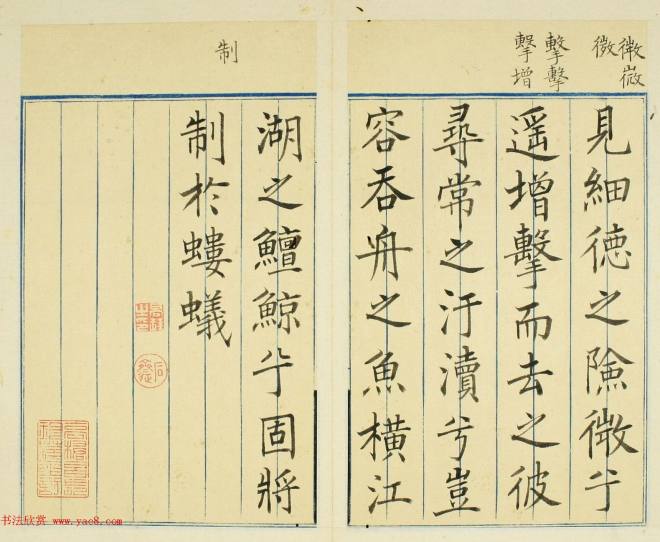 微微
微
擊擊
擊增
見細徳之險微兮
遥增擊而去之彼
尋常之汙瀆兮豈
容吞舟之魚橫江
制
湖之鱣鯨兮固將
制於螻蟻
书法欣赏 www.yac8.com